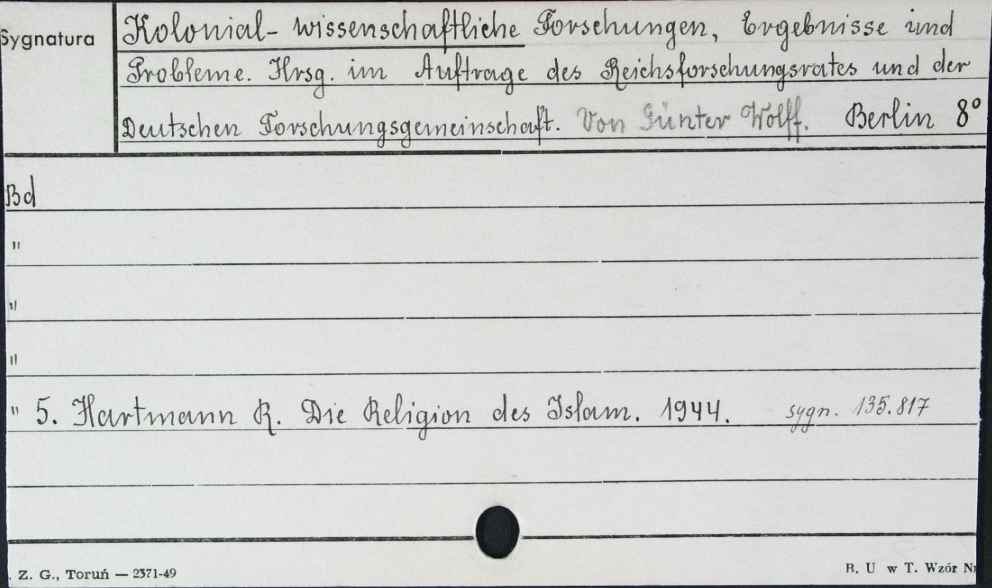 Sygnatura
Kolonial- wissenschaftliche Forschungen, Ergebnisse und
Probleme. Hrsg. im Auftrage des Reichsforschungsrates und der
Deutschen Forschungsgemeinschaft. Von Günter Wolff. Berlin 8°
Bd
"
"
"
" 5. Hartmann R. Die Religion des Islam. 1944. sygn. 135.817
. Z. G., Toruń — 2371-49
B. U w T. Wzór N